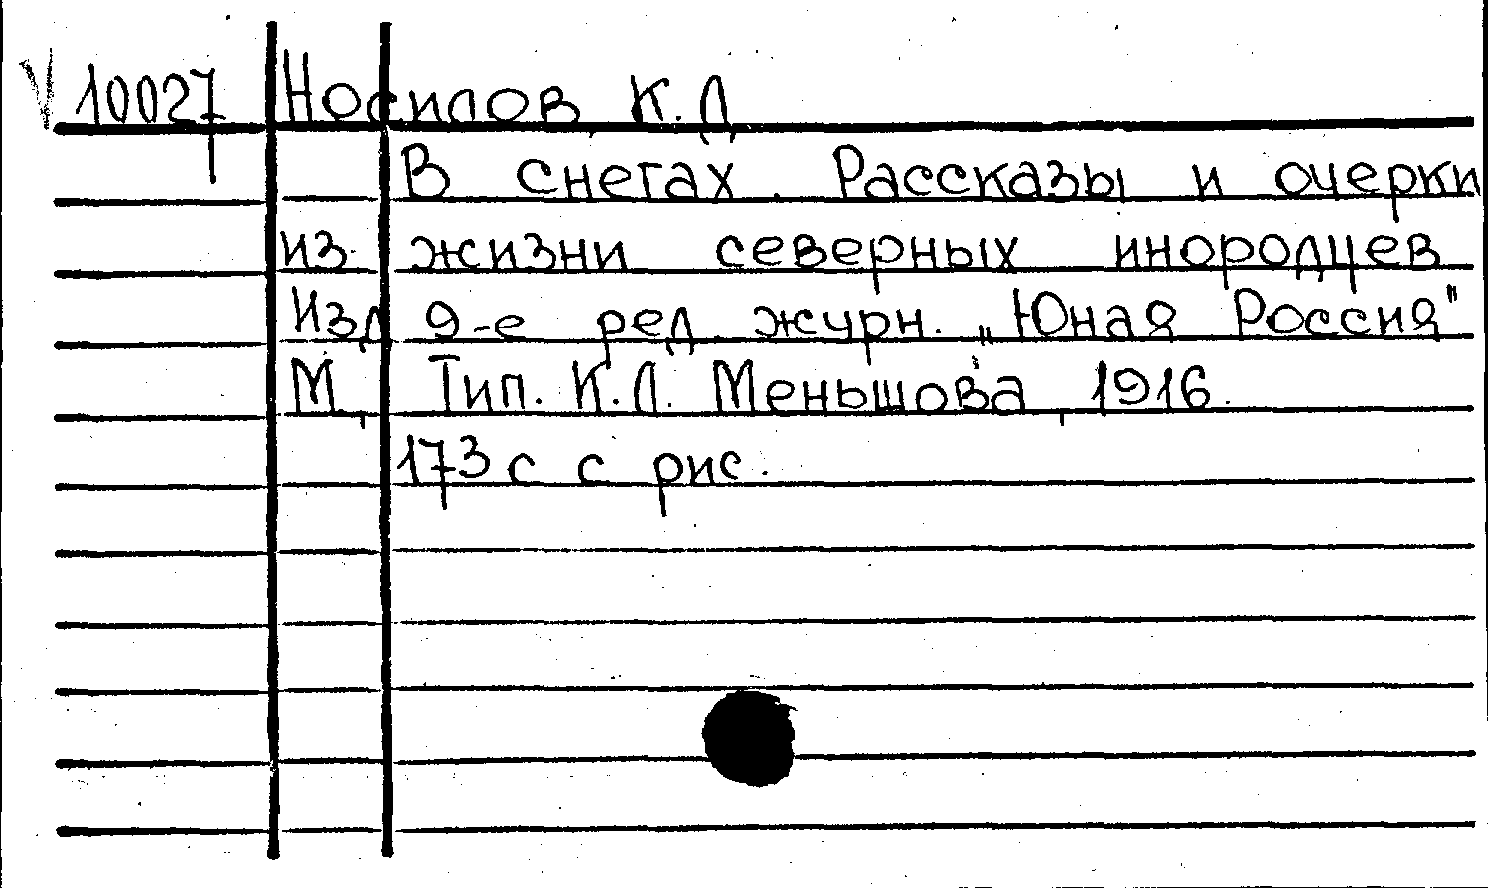 10027 Носилов К. Д
В снегах. Рассказы и очерки
из жизни северных инородцев
Изд 9-е ред журн. „Юная Россия"
М, Тип. К. Л. Меньшова, 1916.
173 с с рис.